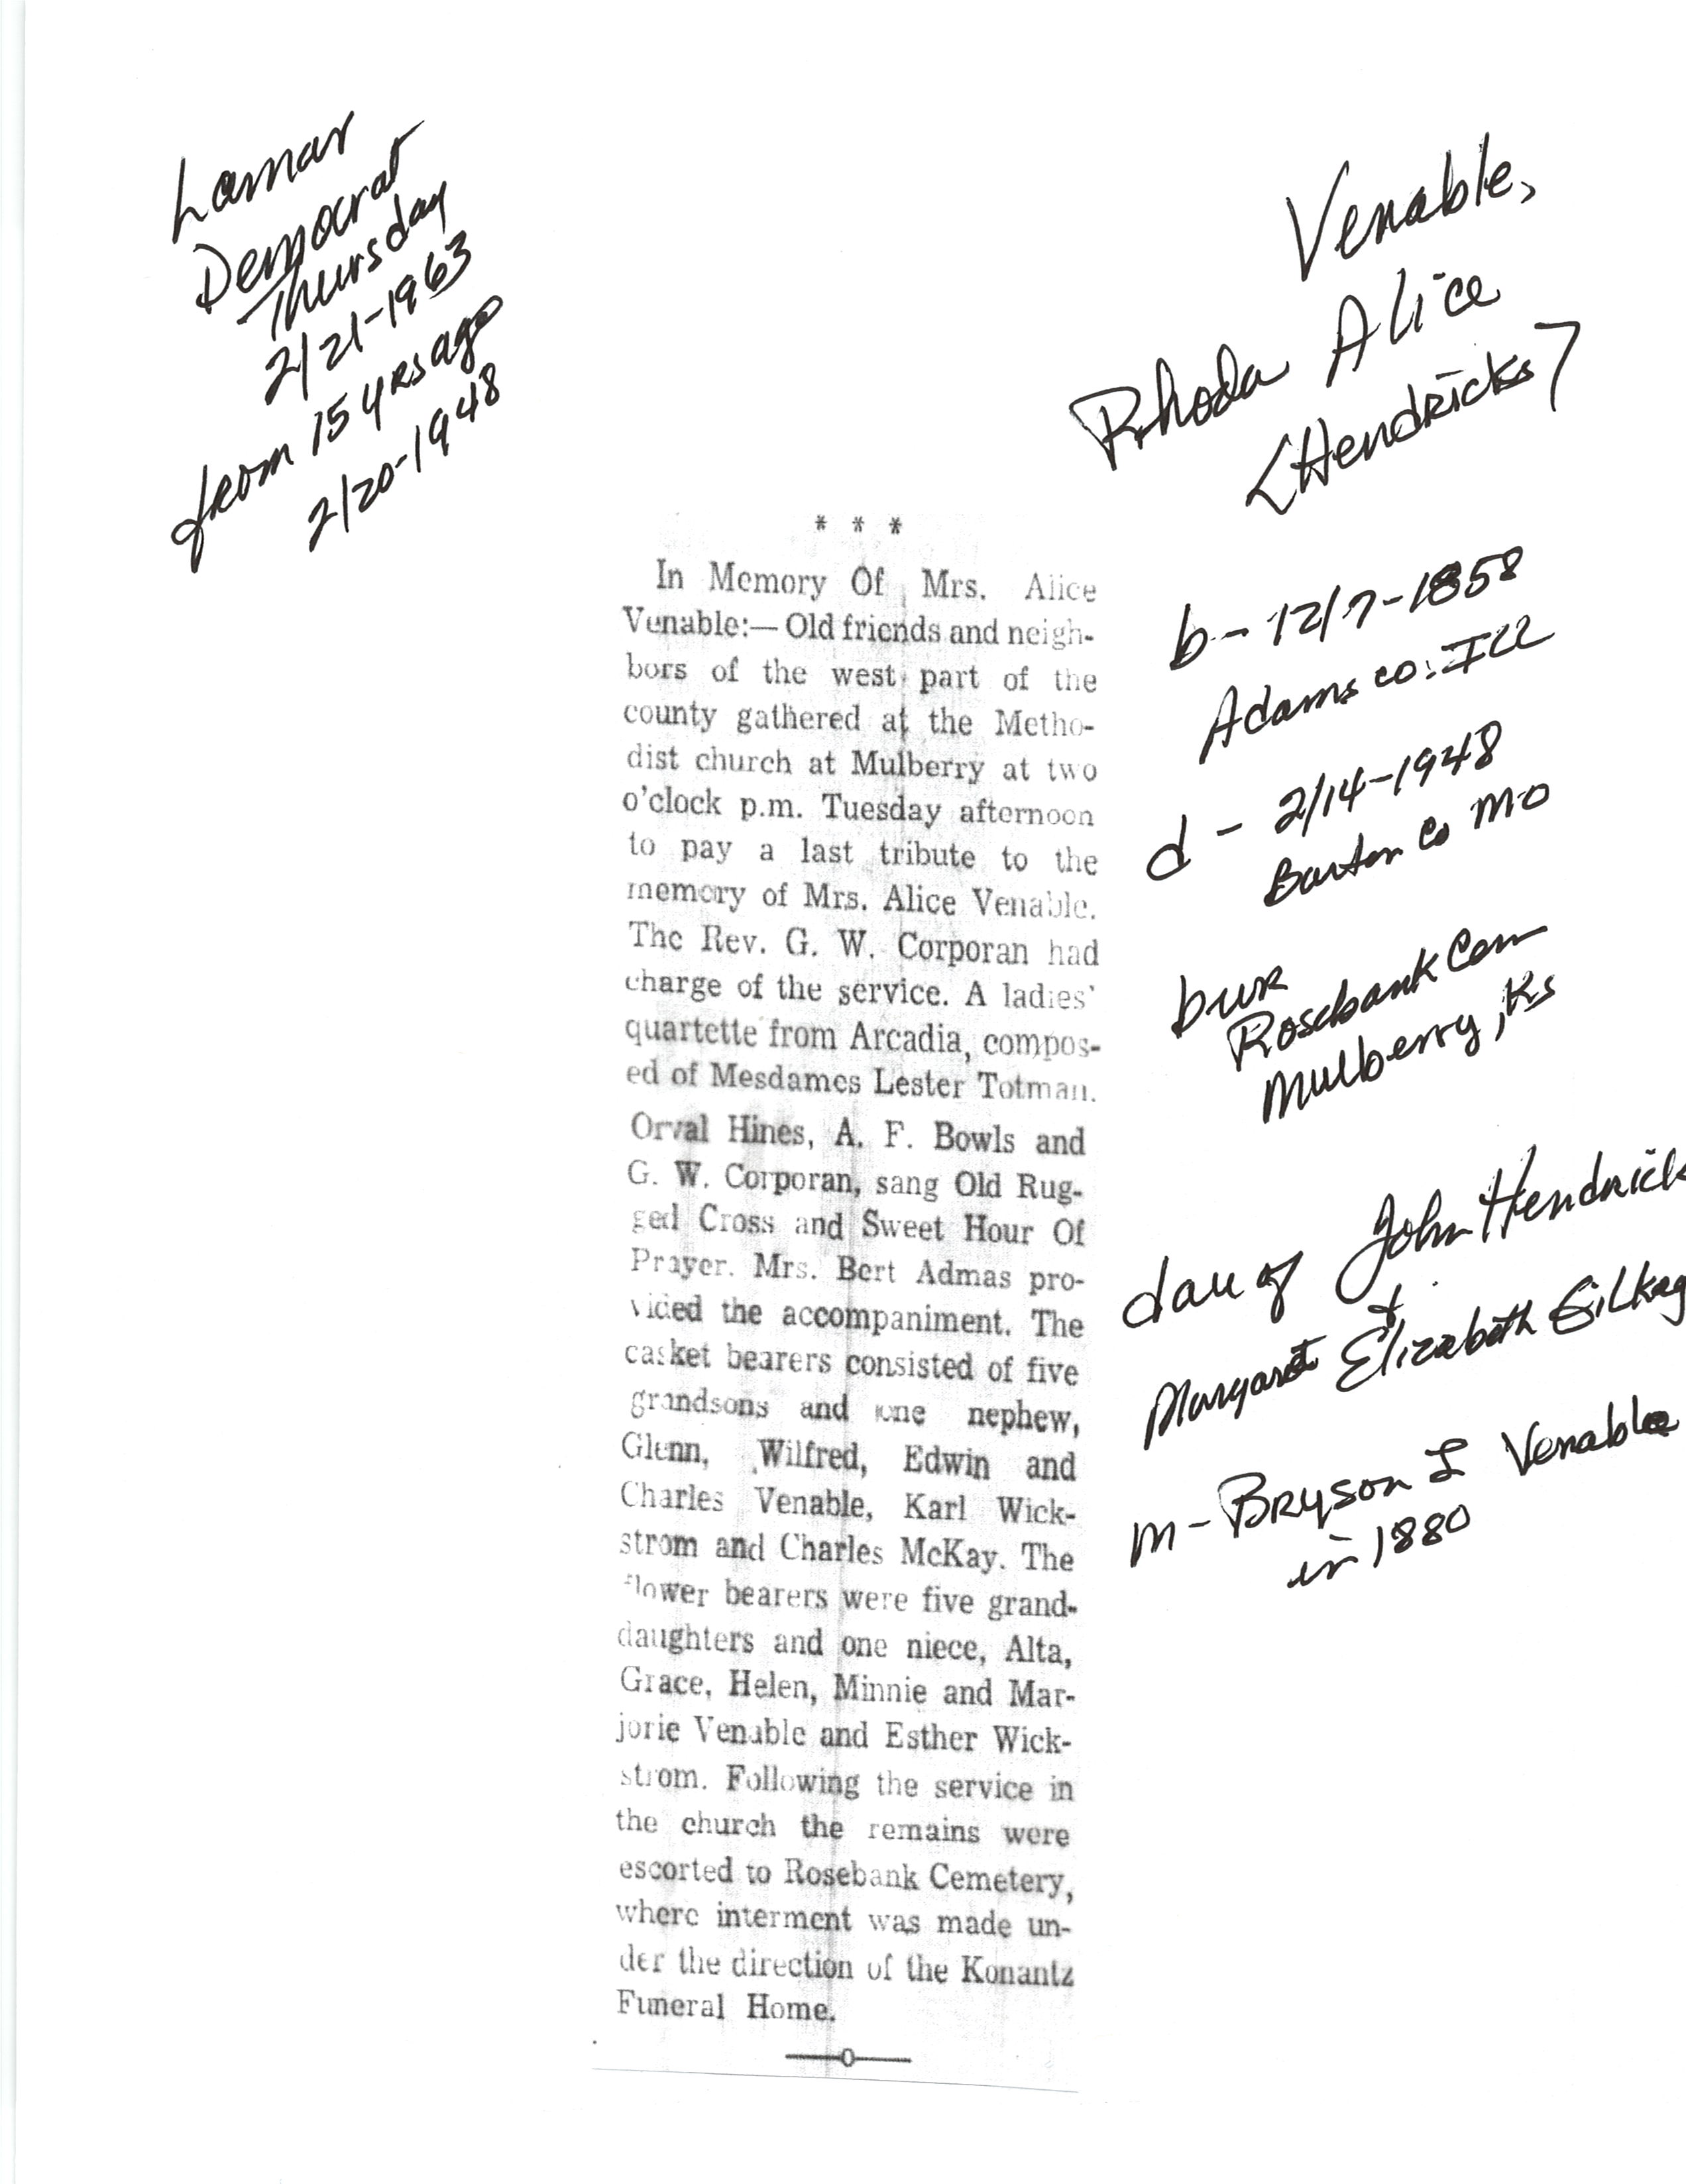 Lamar
Democrat
Thursday
2/21-1963
from 15 yrs ago
2/20-1948
Venable,
Rhoda Alice
<Hendricks>
b- 12/7-1858
Adams co. Ill
d - 2/14-1948
Barton Co Mo
bur
Rosebank Cem
Mulberry, Ks
dau of John Hendrick
&
Margaret Elizabeth Gilkey
m- Bryson L Venable
in 1880
* * *
In Memory Of Mrs. Alice
Venable:— Old friends and neigh-
bors of the west part of the
county gathered at the Metho-
dist church at Mulberry at two
o'clock p.m. Tuesday afternoon
to pay a last tribute to the
memory of Mrs. Alice Venable.
The Rev. G. W. Corporan had
charge of the service. A ladies'
quartette from Arcadia, compos-
ed of Mesdames Lester Totman.
Orval Hines, A. F. Bowls and
G. W. Corporan, sang Old Rug-
ged Cross and Sweet Hour Of
Prayer. Mrs. Bert Admas pro-
vided the accompaniment. The
casket bearers consisted of five
grandsons and one nephew,
Glenn, Wilfred, Edwin and
Charles Venable, Karl Wick-
strom and Charles McKay. The
flower bearers were five grand-
daughters and one niece, Alta,
Grace, Helen, Minnie and Mar-
jorie Venable and Esther Wick-
strom. Following the service in
the church the remains were
escorted to Rosebank Cemetery,
where interment was made un-
der the direction of the Konantz
Funeral Home.
—0—